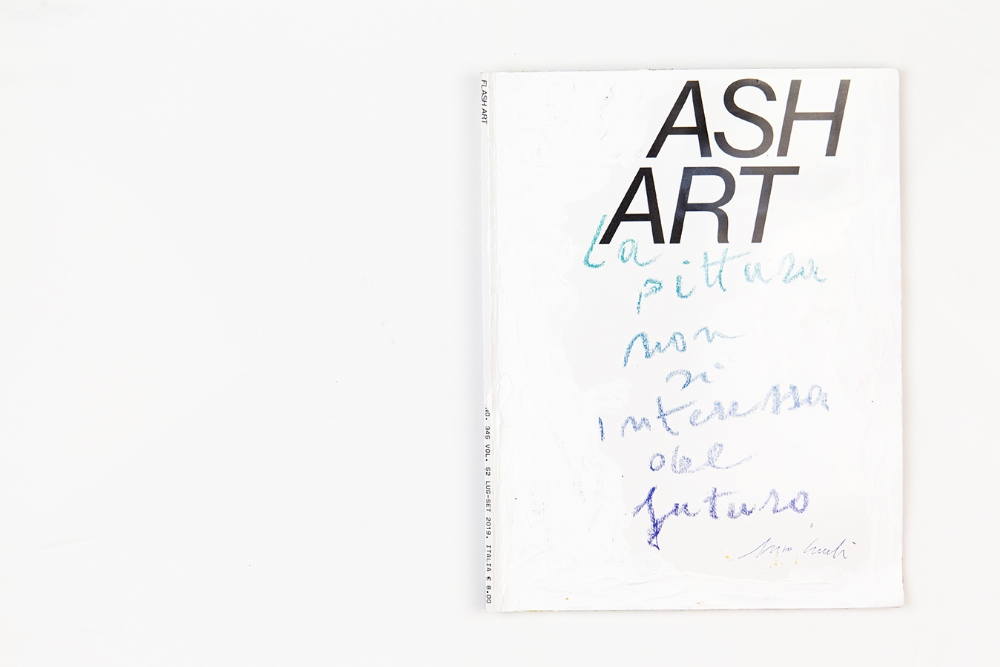 FLASH ART
ASH
ART
La
pittura
non
si
interessa
del
futuro
NO. 345 VOL. 52 LUG–SET 2019, ITALIA € 8.00